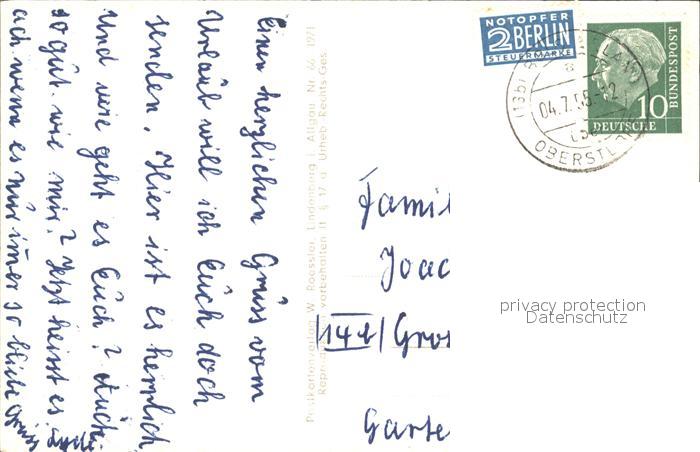 Einen herzlichen Gruss vom
Urlaub will ich Euch doch
senden. Hier ist es herrlich
und wie geht es Euch? Auch
so gut wie mir? Jetzt heisst es
ach wenn es nur immer so bliebe Gruss
Postkartenverlag W. Roessler, Lindenberg i. Allgäu. Nr. 66 1971
Reproduktion vorbehalten lt. § 17 d. Urheb.-Rechts-Ges.
NOTOPFER
2 BERLIN
STEUERMARKE
04.7.55.-12
OBERST
DEUTSCHE
BUNDESPOST
10
Famil
Joac
14a Gros
Garte
privacy protection
Datenschutz